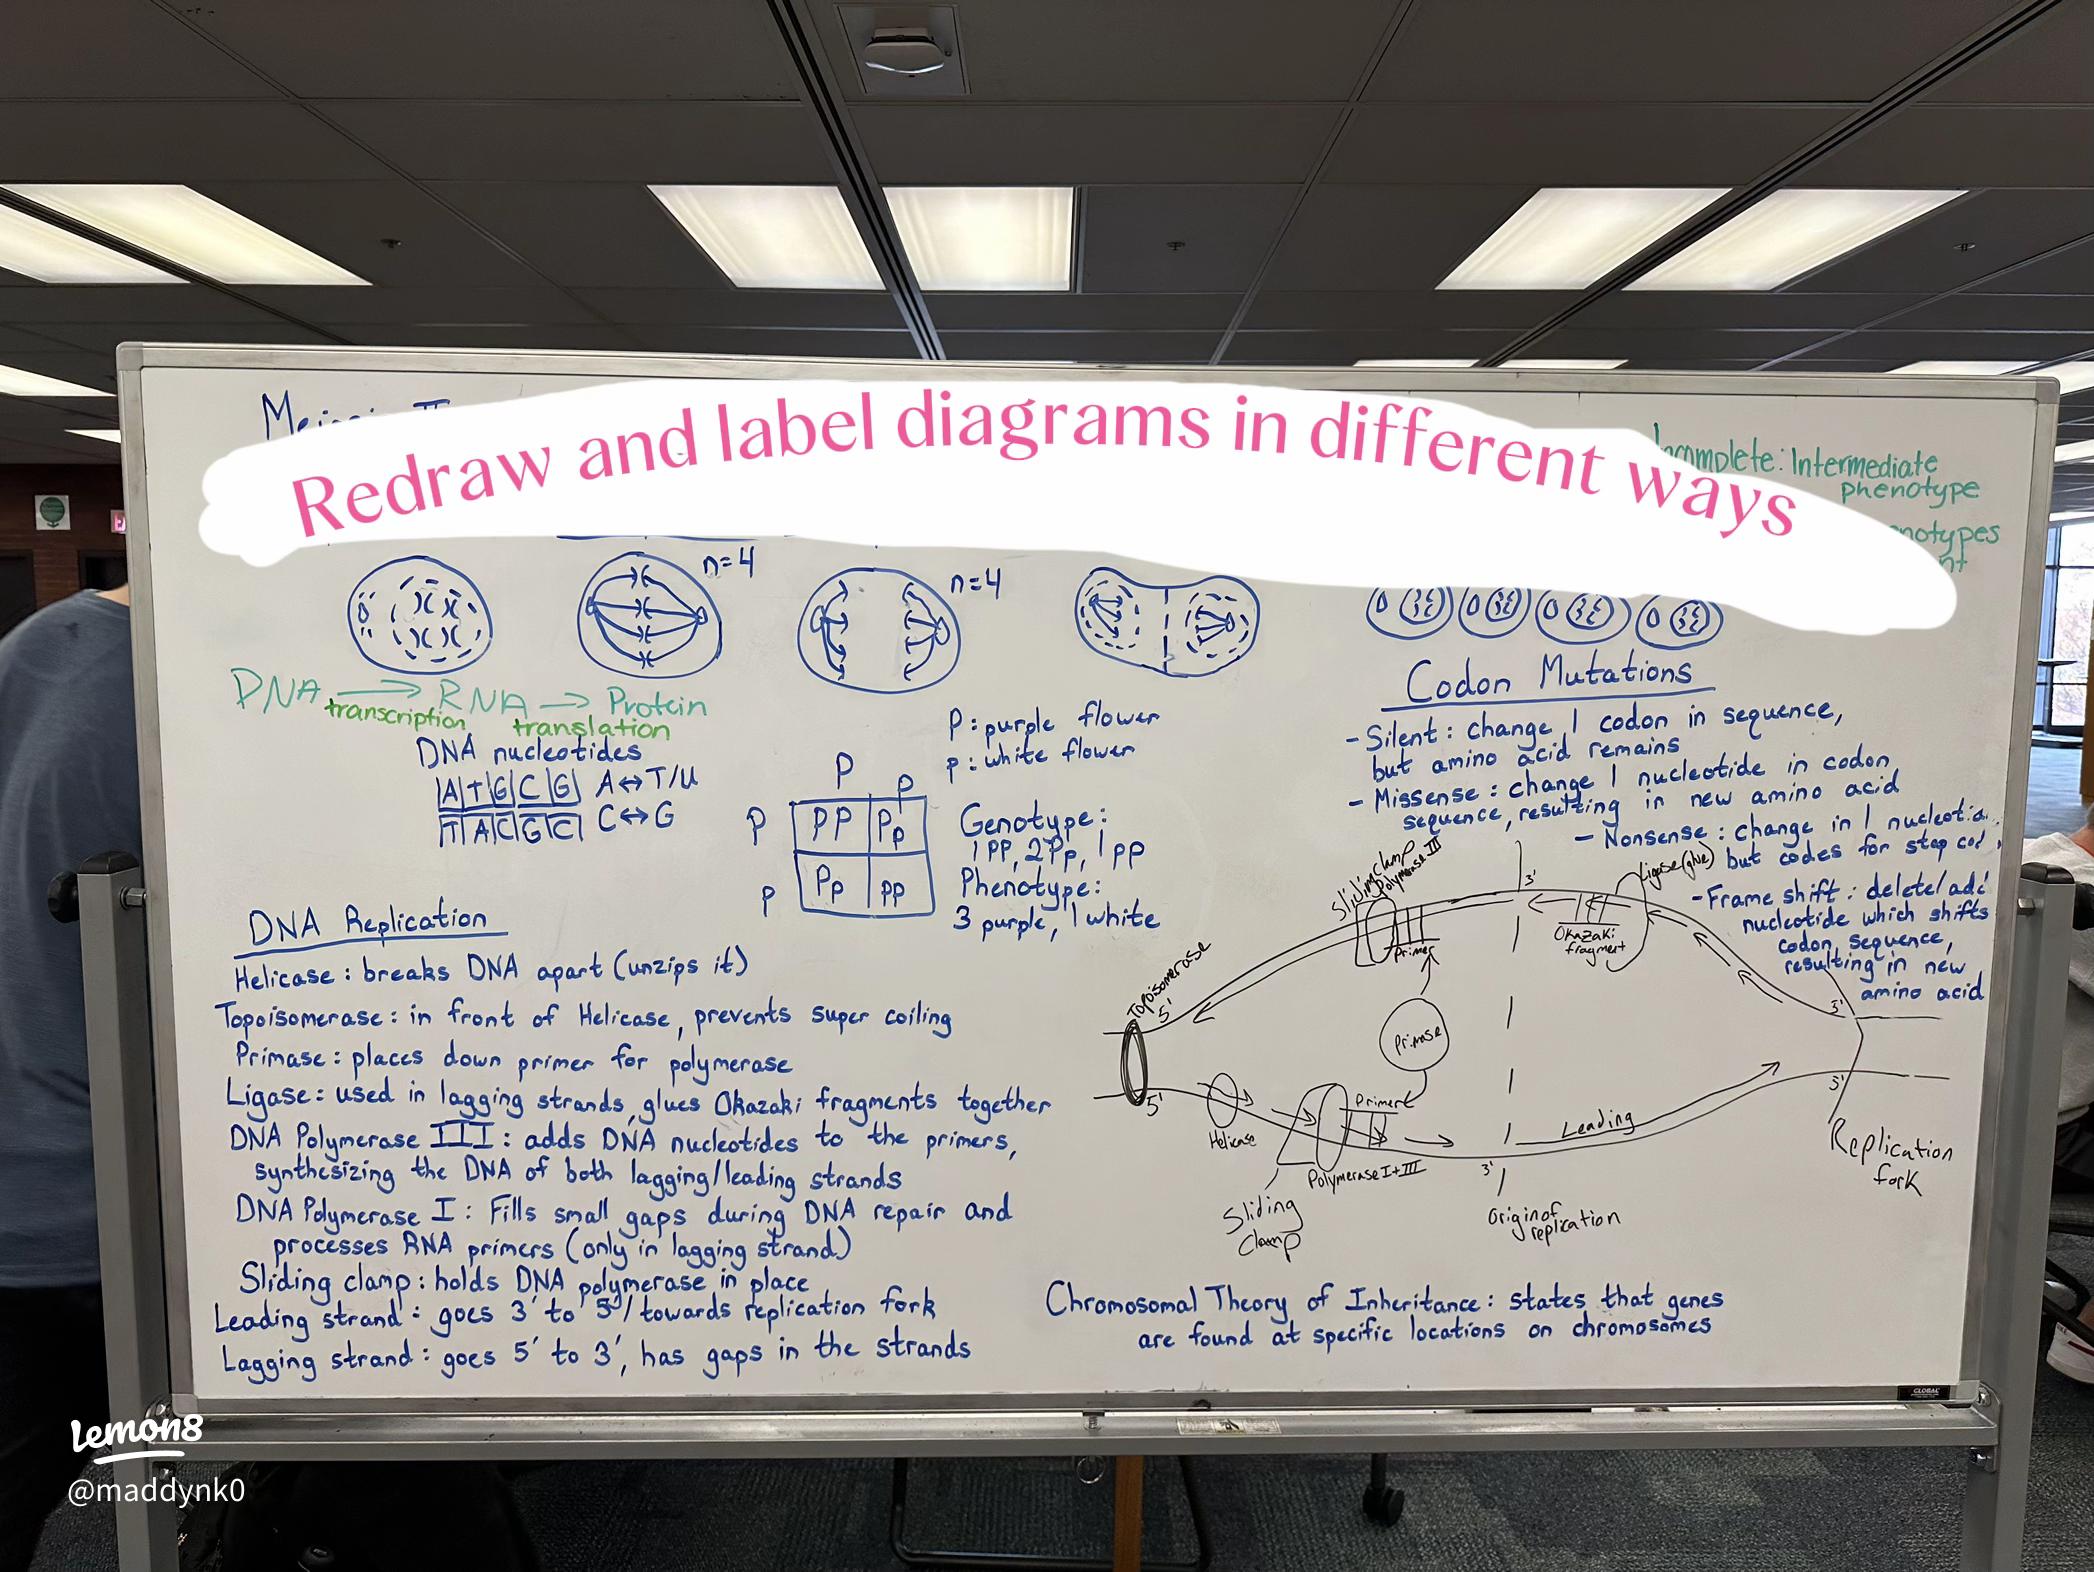 Redraw and label diagrams in different ways
Incomplete: Intermediate
phenotype
n=4
n=4
DNA → RNA → Protein
transcription translation
DNA nucleotides
A T G C G
T A C G C
A↔T/U
C↔G
P: purple flower
p: white flower
P p
P PP Pp
p Pp pp
Genotype:
1 PP, 2 Pp, 1 pp
Phenotype:
3 purple, 1 white
Codon Mutations
- Silent: change 1 codon in sequence,
but amino acid remains
- Missense: change 1 nucleotide in codon
sequence, resulting in new amino acid
- Nonsense: change in 1
but codes for stop
- Frame shift: delete/add
nucleotide which shifts
codon sequence,
resulting in new
amino acid
DNA Replication
Helicase: breaks DNA apart (unzips it)
Topoisomerase: in front of Helicase, prevents super coiling
Primase: places down primer for polymerase
Ligase: used in lagging strands, glues Okazaki fragments together
DNA Polymerase III: adds DNA nucleotides to the primers,
synthesizing the DNA of both lagging/leading strands
DNA Polymerase I: Fills small gaps during DNA repair and
processes RNA primers (only in lagging strand)
Sliding clamp: holds DNA polymerase in place
Leading strand: goes 3' to 5'/towards replication fork
Lagging strand: goes 5' to 3', has gaps in the strands
Sliding clamp
Polymerase III
Primer
3'
Ligase (glue)
Okazaki
fragment
Topoisomerase
5'
3'
Primase
5'
Helicase
Primer
Polymerase I + III
Sliding
Clamp
3'
Leading
3'
Origin of
replication
Replication
fork
Chromosomal Theory of Inheritance: states that genes
are found at specific locations on chromosomes
GLOBAL
Lemon8
@maddynk0